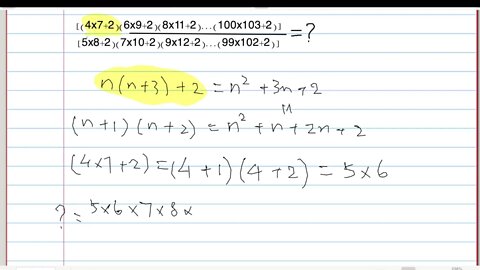 [(4x7+2)(6x9+2)(8x11+2)...(100x103+2)]
[(5x8+2)(7x10+2)(9x12+2)...(99x102+2)] =?
n(n+3)+2 = n²+3n+2
(n+1)(n+2) = n²+n+2n+2
(4x7+2)=(4+1)(4+2) = 5x6
? = 5x6x7x8x